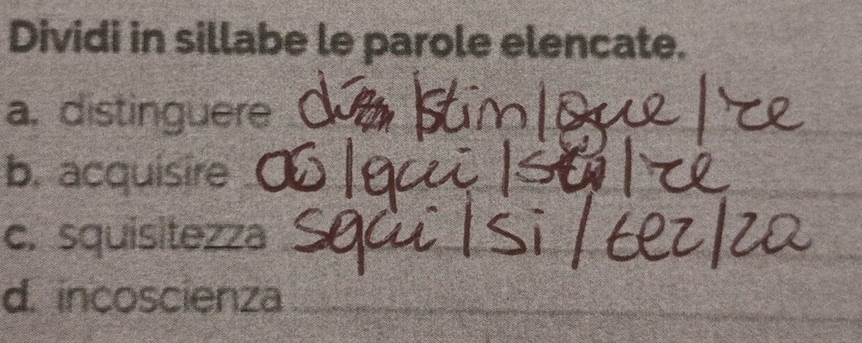 Dividi in sillabe le parole elencate.
a. distinguere di |stim|gue|re
b. acquisire ac|qui|si|re
c. squisitezza squi|si/tez|za
d. incoscienza